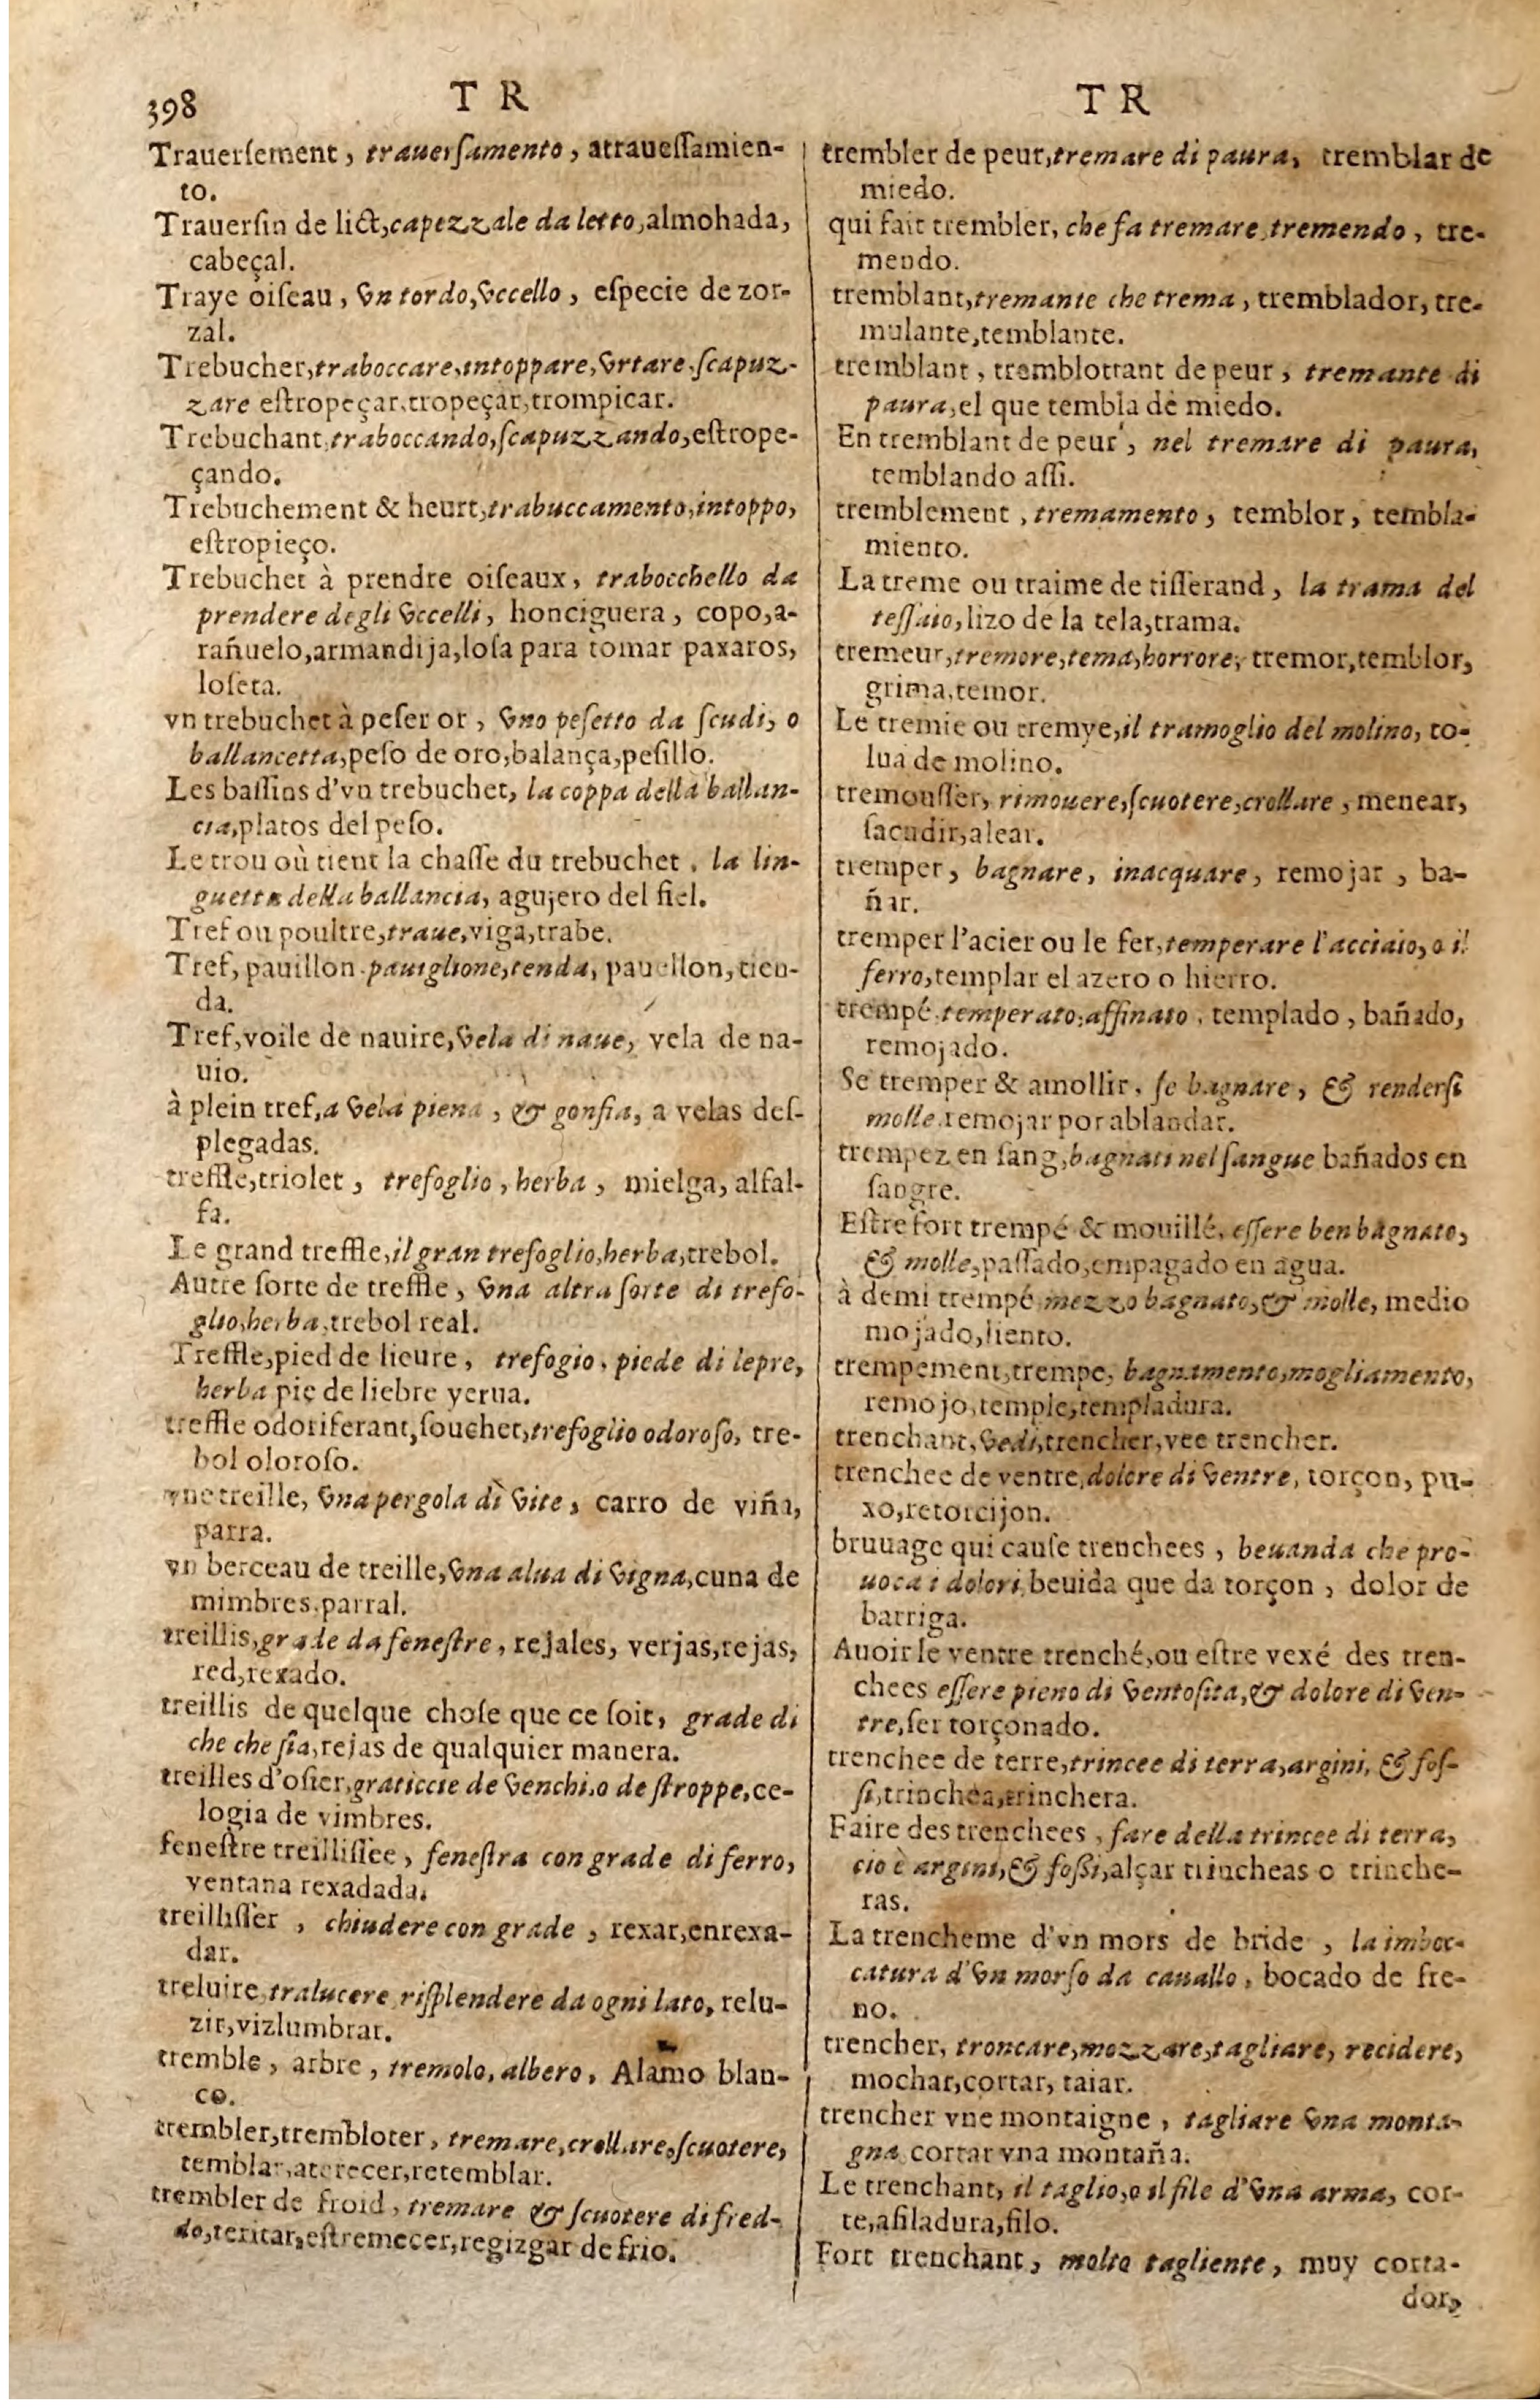 398
T R
T R
Trauerſement, trauerſamento, atraueſſamien-
to.
Trauerſin de lict, capezzale da letto, almohada,
cabeçal.
Traye oiſeau, vn tordo, vccello, eſpecie de zor-
zal.
Trebucher, traboccare, intoppare, vrtare, ſcapuz-
zare eſtropeçar, tropeçar, trompicar.
Trebuchant, traboccando, ſcapuzzando, eſtrope-
çando.
Trebuchement & heurt, trabuccamento, intoppo,
eſtropieço.
Trebuchet à prendre oiſeaux, trabocchello da
prendere degli vccelli, honciguera, copo, a-
rañuelo, armandija, loſa para tomar paxaros,
loſeta.
vn trebuchet à peſer or, vno peſetto da ſcudi, o
ballancetta, peſo de oro, balança, peſillo.
Les baſſins d'vn trebuchet, la coppa della ballan-
cia, platos del peſo.
Le trou où tient la chaſſe du trebuchet, la lin-
guetta della ballancia, agujero del fiel.
Tref ou poultre, traue, viga, trabe.
Tref, pauillon pauiglione, tenda, pauellon, tien-
da.
Tref, voile de nauire, vela di naue, vela de na-
uio.
à plein tref, a vela piena, & gonfia, a velas deſ-
plegadas.
treffle, triolet, trefoglio, herba, mielga, alfal-
fa.
Le grand treffle, il gran trefoglio, herba, trebol.
Autre ſorte de treffle, vna altra ſorte di trefo-
glio, herba, trebol real.
Treffle, pied de lieure, trefogio, piede di lepre,
herba pie de liebre yerua.
treffle odoriferant, ſouchet, trefoglio odoroſo, tre-
bol oloroſo.
vne treille, vna pergola di vite, carro de viña,
parra.
vn berceau de treille, vna alua di vigna, cuna de
mimbres, parral.
treillis, grade da feneſtre, rejales, verjas, rejas,
red, rexado.
treillis de quelque choſe que ce ſoit, grade di
che che ſia, rejas de qualquier manera.
treilles d'oſier, graticcie de venchi, o de ſtroppe, ce-
logia de vimbres.
feneſtre treilliſſée, feneſtra con grade di ferro,
ventana rexadada.
treilliſſer, chiudere con grade, rexar, enrexa-
dar.
treluire, tralucere riſplendere da ogni lato, relu-
zir, vizlumbrar.
tremble, arbre, tremolo, albero, Alamo blan-
co.
trembler, trembloter, tremare, crollare, ſcuotere,
temblar, aterecer, retemblar.
trembler de froid, tremare & ſcuotere di fred-
do, teritar, eſtremecer, regizgar de frio.
trembler de peur, tremare di paura, tremblar de
miedo.
qui fait trembler, che fa tremare, tremendo, tre-
mendo.
tremblant, tremante che trema, tremblador, tre-
mulante, temblante.
tremblant, tramblottant de peur, tremante di
paura, el que tembla de miedo.
En tremblant de peur, nel tremare di paura,
temblando aſſi.
tremblement, tremamento, temblor, tembla-
miento.
La treme ou traime de tiſſerand, la trama del
teſſaio, lizo de la tela, trama.
tremeur, tremore, tema, horrore, tremor, temblor,
grima, temor.
Le tremie ou tremye, il tramoglio del molino, to-
lua de molino.
tremouſſer, rimouere, ſcuotere, crollare, menear,
ſacudir, alear.
tremper, bagnare, inacquare, remojar, ba-
ñar.
tremper l'acier ou le fer, temperare l'acciaio, o il
ferro, templar el azero o hierro.
trempé, temperato, affinato, templado, bañado,
remojado.
Se tremper & amollir, ſe bagnare, & renderſi
molle, remojar por ablandar.
trempez en ſang, bagnati nel ſangue bañados en
ſangre.
Eſtre fort trempé & mouillé, eſſere ben bagnato,
& molle, paſſado, empagado en agua.
à demi trempé mezzo bagnato, & molle, medio
mojado, liento.
trempement, trempe, bagnamento, mogliamento,
remojo, temple, templadura.
trenchant, vedi, trencher, vee trencher.
trenchee de ventre, dolore di ventre, torçon, pu-
xo, retorcijon.
bruuage qui cauſe trenchees, beuanda che pro-
uoca i dolori, beuida que da torçon, dolor de
barriga.
Auoir le ventre trenché, ou eſtre vexé des tren-
chees eſſere pieno di ventoſita, & dolore di ven-
tre, ſer torçonado.
trenchee de terre, trincee di terra, argini, & foſ-
ſi, trinchea, trinchera.
Faire des trenchees, fare della trincee di terra,
cio è argini, & foſſi, alçar trincheas o trinche-
ras.
La trencheme d'vn mors de bride, la imboc-
catura d'vn morſo da cauallo, bocado de fre-
no.
trencher, troncare, mozzare, tagliare, recidere,
mochar, cortar, taiar.
trencher vne montaigne, tagliare vna monta-
gna cortar vna montaña.
Le trenchant, il taglio, o il file d'vna arma, cor-
te, afiladura, filo.
Fort trenchant, molto tagliente, muy corta-
dor,